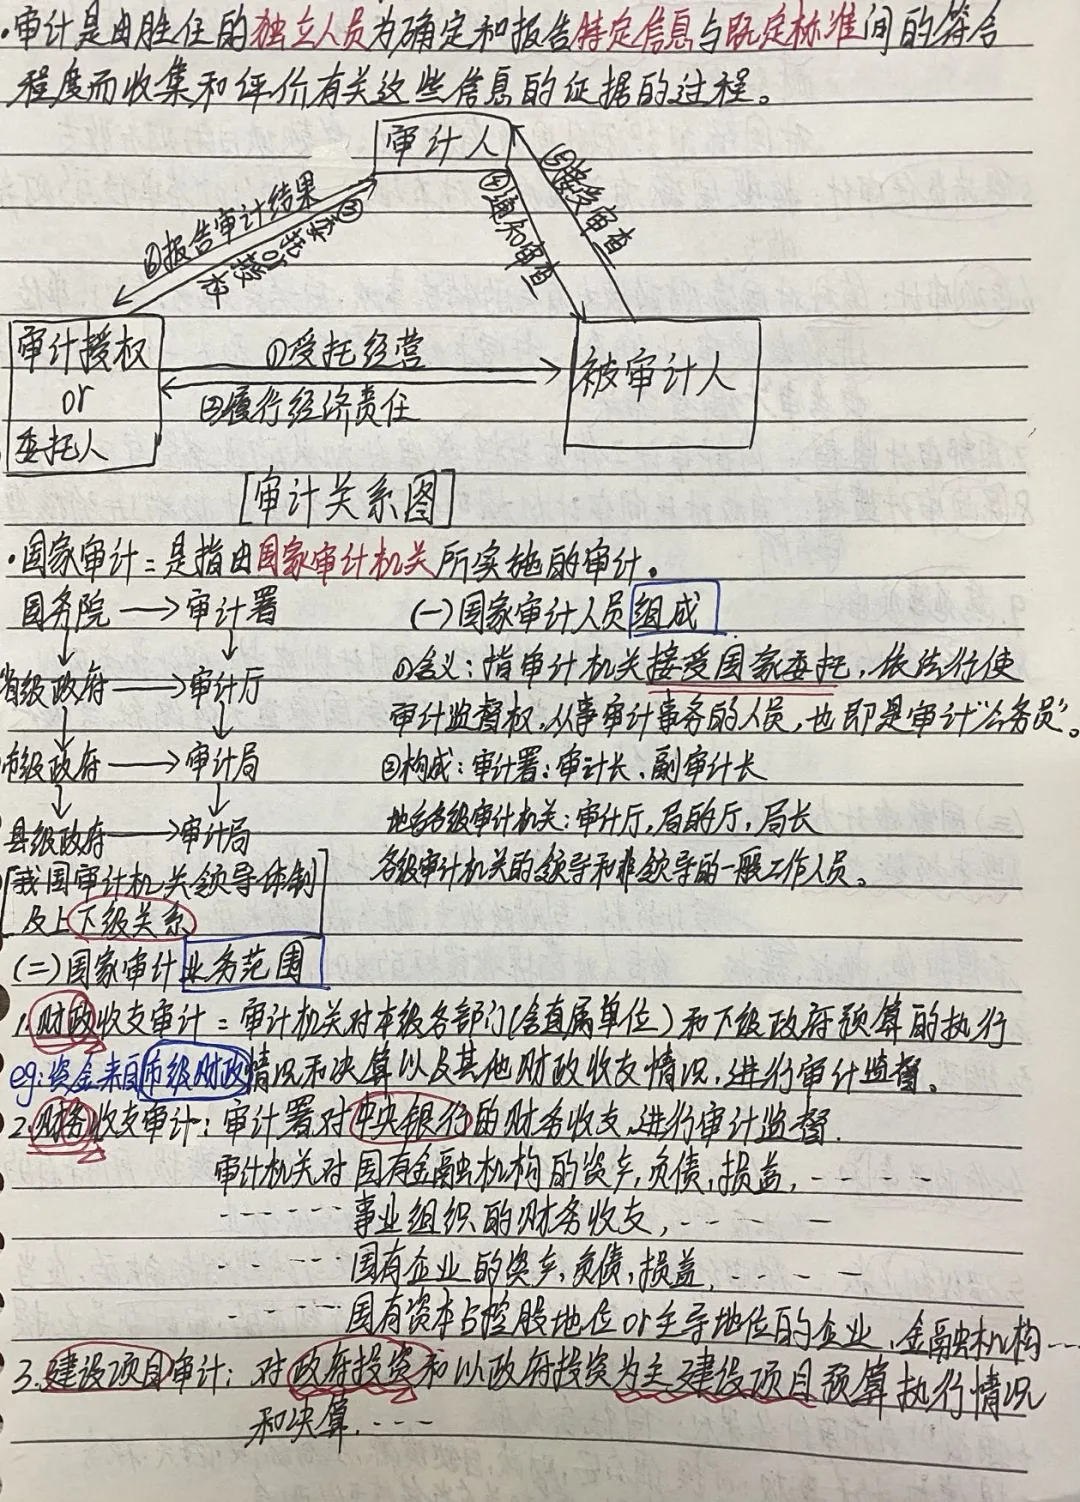 ·审计是由胜任的独立人员为确定和报告特定信息与既定标准间的符合
程度而收集和评价有关这些信息的证据的过程。
审计人
⑥报告审计结果
③委托or授权
④通知审查
⑤接受审查
审计授权
or
委托人
①受托经营
②履行经济责任
被审计人
[审计关系图]
·国家审计:是指由国家审计机关所实施的审计。
国务院→审计署
省级政府→审计厅
市级政府→审计局
县级政府→审计局
[我国审计机关领导体制
及上下级关系]
(一)国家审计人员组成
①含义:指审计机关接受国家委托,依法行使
审计监督权,从事审计事务的人员,也即是审计“公务员”。
②构成:审计署:审计长、副审计长
地方各级审计机关:审计厅,局的厅,局长
各级审计机关的领导和非领导的一般工作人员。
(二)国家审计业务范围
1.财政收支审计:审计机关对本级各部门(含直属单位)和下级政府预算的执行
eg:资金来自市级财政
情况和决算以及其他财政收支情况,进行审计监督。
2.财务收支审计:审计署对中央银行的财务收支,进行审计监督.
审计机关对国有金融机构的资产,负债,损益,-----
------事业组织的财务收支,----
-----国有企业的资产,负债,损益,----
-----国有资本占控股地位or主导地位的企业,金融机构---
3.建设项目审计:对政府投资和以政府投资为主建设项目预算执行情况
和决算,---